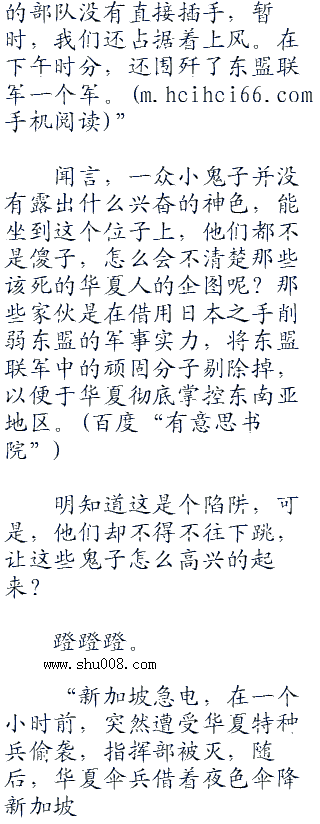 的部队没有直接插手，暂
时，我们还占据着上风。在
下午时分，还围歼了东盟联
军一个军。(m.hcihci66.com
手机阅读)”
闻言，一众小鬼子并没
有露出什么兴奋的神色，能
坐到这个位子上，他们都不
是傻子，怎么会不清楚那些
该死的华夏人的企图呢？那
些家伙是在借用日本之手削
弱东盟的军事实力，将东盟
联军中的顽固分子剔除掉，
以便于华夏彻底掌控东南亚
地区。(百度“有意思书
院”)
明知道这是个陷阱，可
是，他们却不得不往下跳，
让这些鬼子怎么高兴的起
来？
蹬蹬蹬。
www.shu008.com
“新加坡急电，在一个
小时前，突然遭受华夏特种
兵偷袭，指挥部被灭，随
后，华夏伞兵借着夜色伞降
新加坡